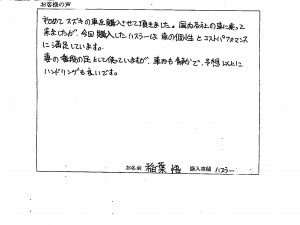 お客様の声
初めてスズキの車を購入させて頂きました。国内各社の車に乗って
来ましたが、今回購入したハスラーは車の個性とコストパフォーマンス
に満足しています。
妻の普段の足として使っていますが、車内も静かで、予想以上に
ハンドリングも良いです。
お名前 稲葉 悟 購入車種 ハスラー